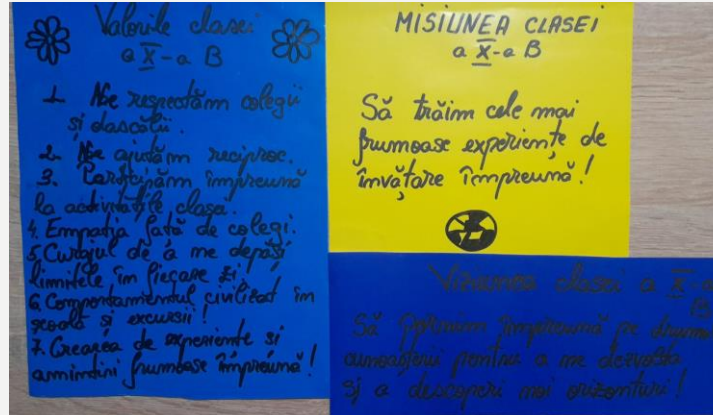 Valorile clasei
a X-a B
1. Ne respectăm colegii
și dascălii.
2. Ne ajutăm reciproc.
3. Participăm împreună
la activitățile clasa.
4. Empatia față de colegi.
5. Curajul de a ne depăși
limitele în fiecare zi!
6. Comportamentul civilizat în
școală și excursii!
7. Crearea de experiențe și
amintiri frumoase împreună!
MISIUNEA CLASEI
a X-a B
Să trăim cele mai
frumoase experiențe de
învățare împreună!
Viziunea clasei a X-a
B
Să pornim împreună pe drumul
cunoașterii pentru a ne dezvolta
și a descoperi noi orizonturi!